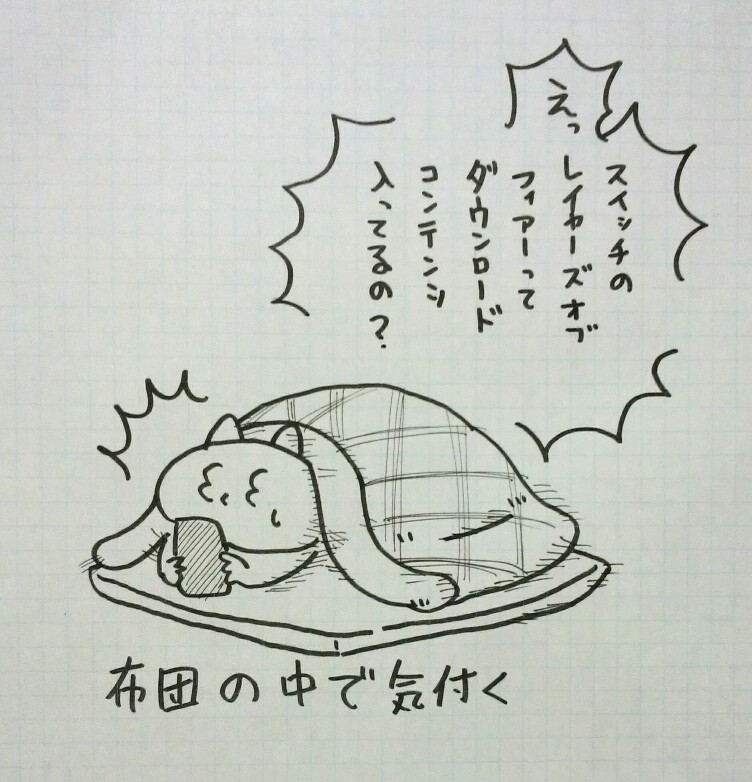 えっ
スイッチの
レイヤーズオブ
フィアーって
ダウンロード
コンテンツ
入ってるの？
布団の中で気付く